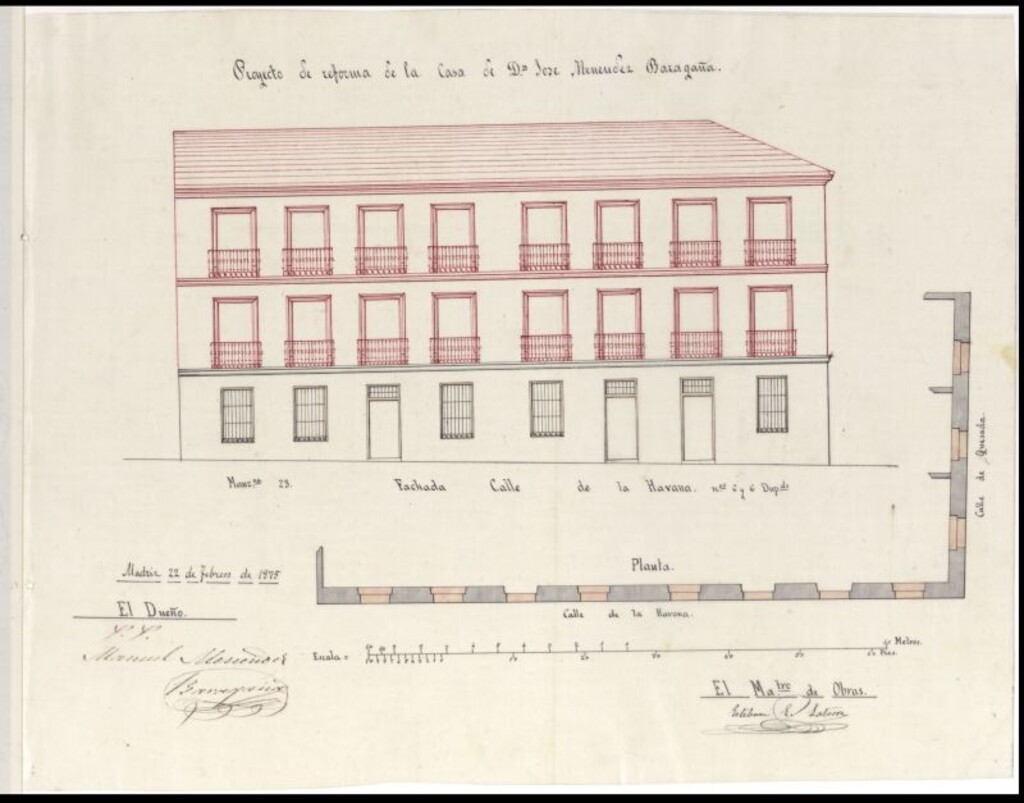 Proyecto de reforma de la Casa de Dn Jose Menendez Baragaña.
Manzna 23. Fachada Calle de la Havana. nos 5 y 6 Dupdo
Calle de Quesada.
Planta.
Calle de la Havana.
Madrid 22 de Febrero de 1875
El Dueño.
P. P.
Manuel Menendez
Escala =
Metros.
Pies.
El Matro de Obras.
Esteban